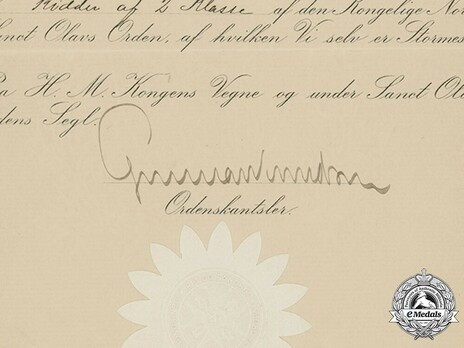 Ridder af 2 Klasse af den Kongelige No
nct Olavs Orden, af hvilken Vi selv er Stormes
a H. M. Kongens Vegne og under Sanct Ola
dens Segl.
Ordenskantsler.
eMedals